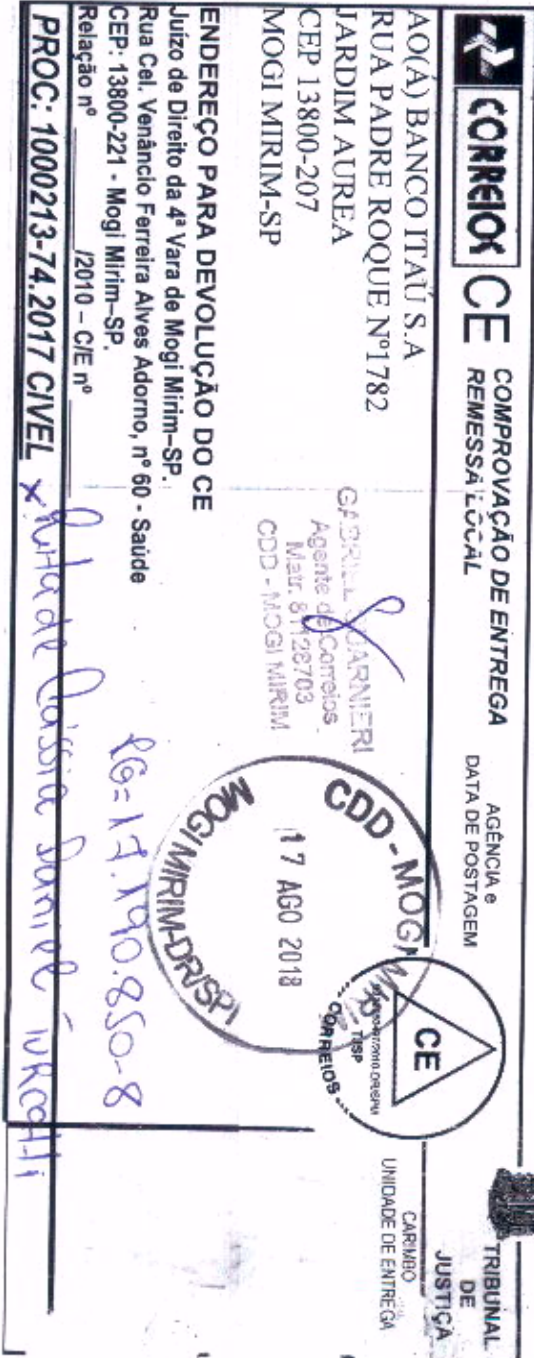 CORREIOS CE COMPROVAÇÃO DE ENTREGA
REMESSA LOCAL
AGÊNCIA e
DATA DE POSTAGEM
TRIBUNAL
DE
JUSTIÇA
CARIMBO
UNIDADE DE ENTREGA
CE
TJSP
CORREIOS
AO(À) BANCO ITAÚ S.A
RUA PADRE ROQUE Nº1782
JARDIM AUREA
CEP 13800-207
MOGI MIRIM-SP
GABRIEL GUARNIERI
Agente de Correios
Matr. 81128703
CDD - MOGI MIRIM
CDD - MOGI MIRIM
17 AGO 2018
MOGI MIRIM-DR/SPI
ENDEREÇO PARA DEVOLUÇÃO DO CE
Juízo de Direito da 4ª Vara de Mogi Mirim–SP.
Rua Cel. Venâncio Ferreira Alves Adorno, nº 60 - Saúde
CEP: 13800-221 - Mogi Mirim–SP.
Relação nº ________/2010 – C/E nº ________
RG=17.190.850-8
PROC: 1000213-74.2017 CIVEL
x Rita de Cássia Daniel